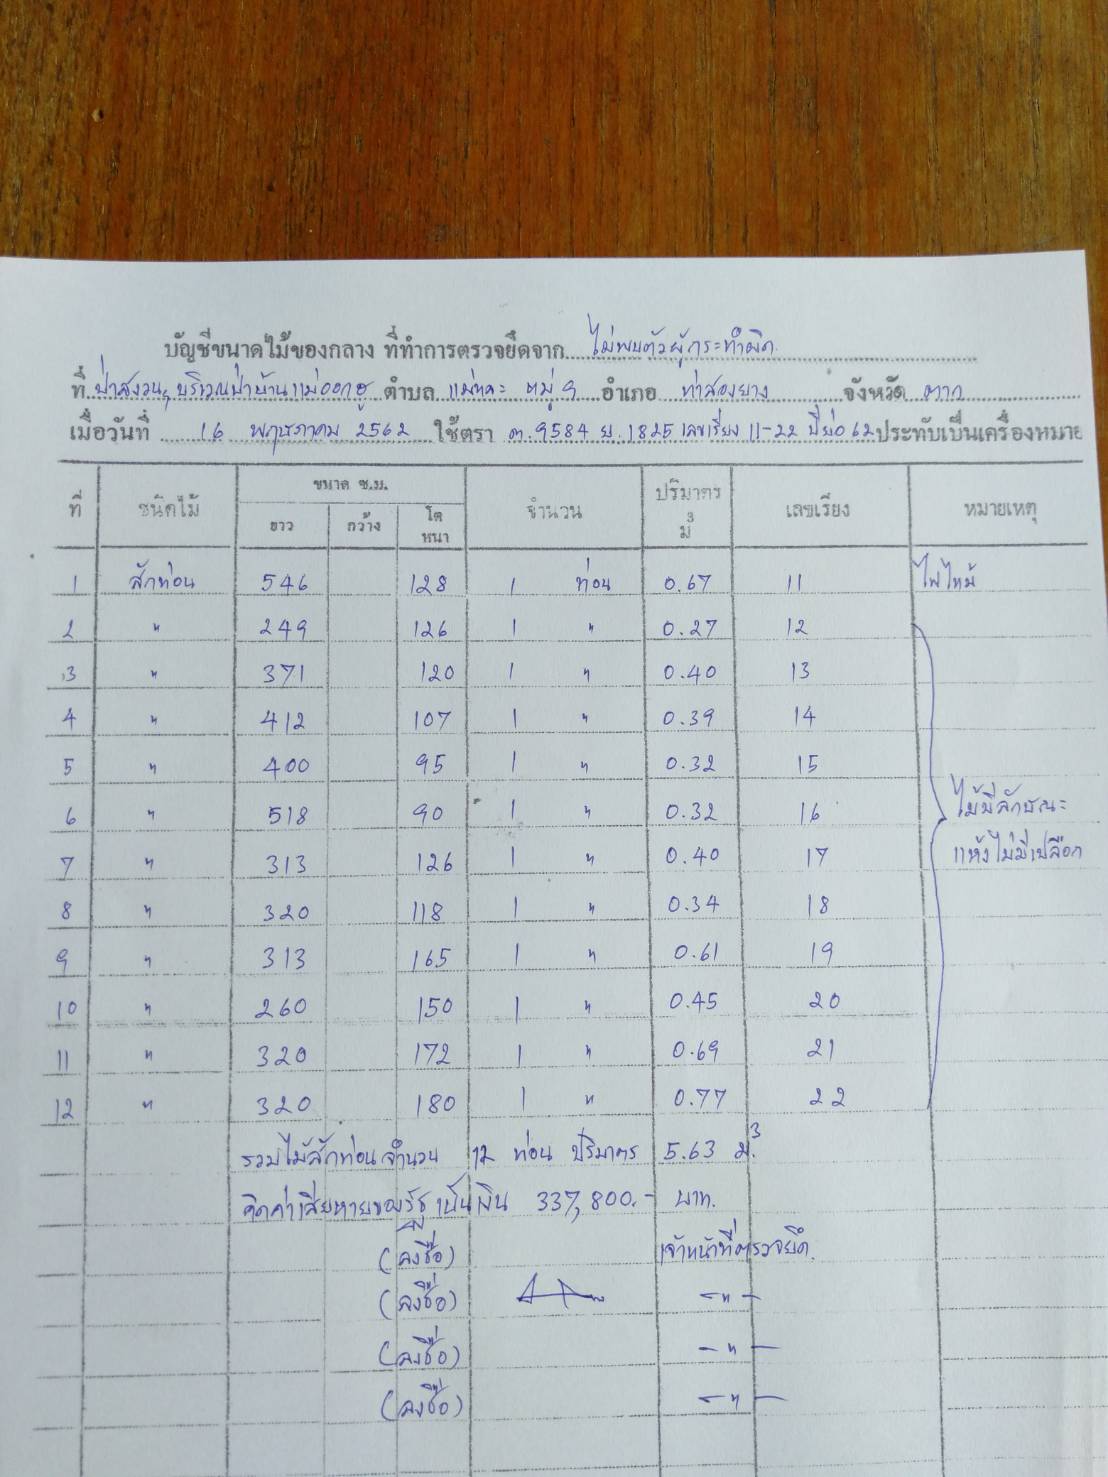 บัญชีขนาดไม้ของกลาง ที่ทำการตรวจยึดจาก ไม่พบตัวผู้กระทำผิด
ที่ ป่าสงวนฯ บริเวณป่าบ้านแม่ออกฮู ตำบล แม่หละ หมู่ 9 อำเภอ ท่าสองยาง จังหวัด ตาก
เมื่อวันที่ 16 พฤษภาคม 2562 ใช้ตรา ต.9584 ย.1825 เลขเรียง 11-22 ปีย่อ 62 ประทับเป็นเครื่องหมาย
ที่ ชนิดไม้ ขนาด ซ.ม. จำนวน ปริมาตร ม³ เลขเรียง หมายเหตุ
ยาว กว้าง โต หนา
1 สักท่อน 546 128 1 ท่อน 0.67 11 ไฟไหม้
2 " 249 126 1 " 0.27 12
3 " 371 120 1 " 0.40 13
4 " 412 107 1 " 0.39 14
5 " 400 95 1 " 0.32 15
6 " 518 90 1 " 0.32 16 ไม้มีลักษณะ
7 " 313 126 1 " 0.40 17 แห้งไม่มีเปลือก
8 " 320 118 1 " 0.34 18
9 " 313 165 1 " 0.61 19
10 " 260 150 1 " 0.45 20
11 " 320 172 1 " 0.69 21
12 " 320 180 1 " 0.77 22
รวมไม้สักท่อน จำนวน 12 ท่อน ปริมาตร 5.63 ม.³
คิดค่าเสียหายของรัฐ เป็นเงิน 337,800.- บาท.
(ลงชื่อ) เจ้าหน้าที่ตรวจยึด.
(ลงชื่อ) -"-
(ลงชื่อ) -"-
(ลงชื่อ) -"-